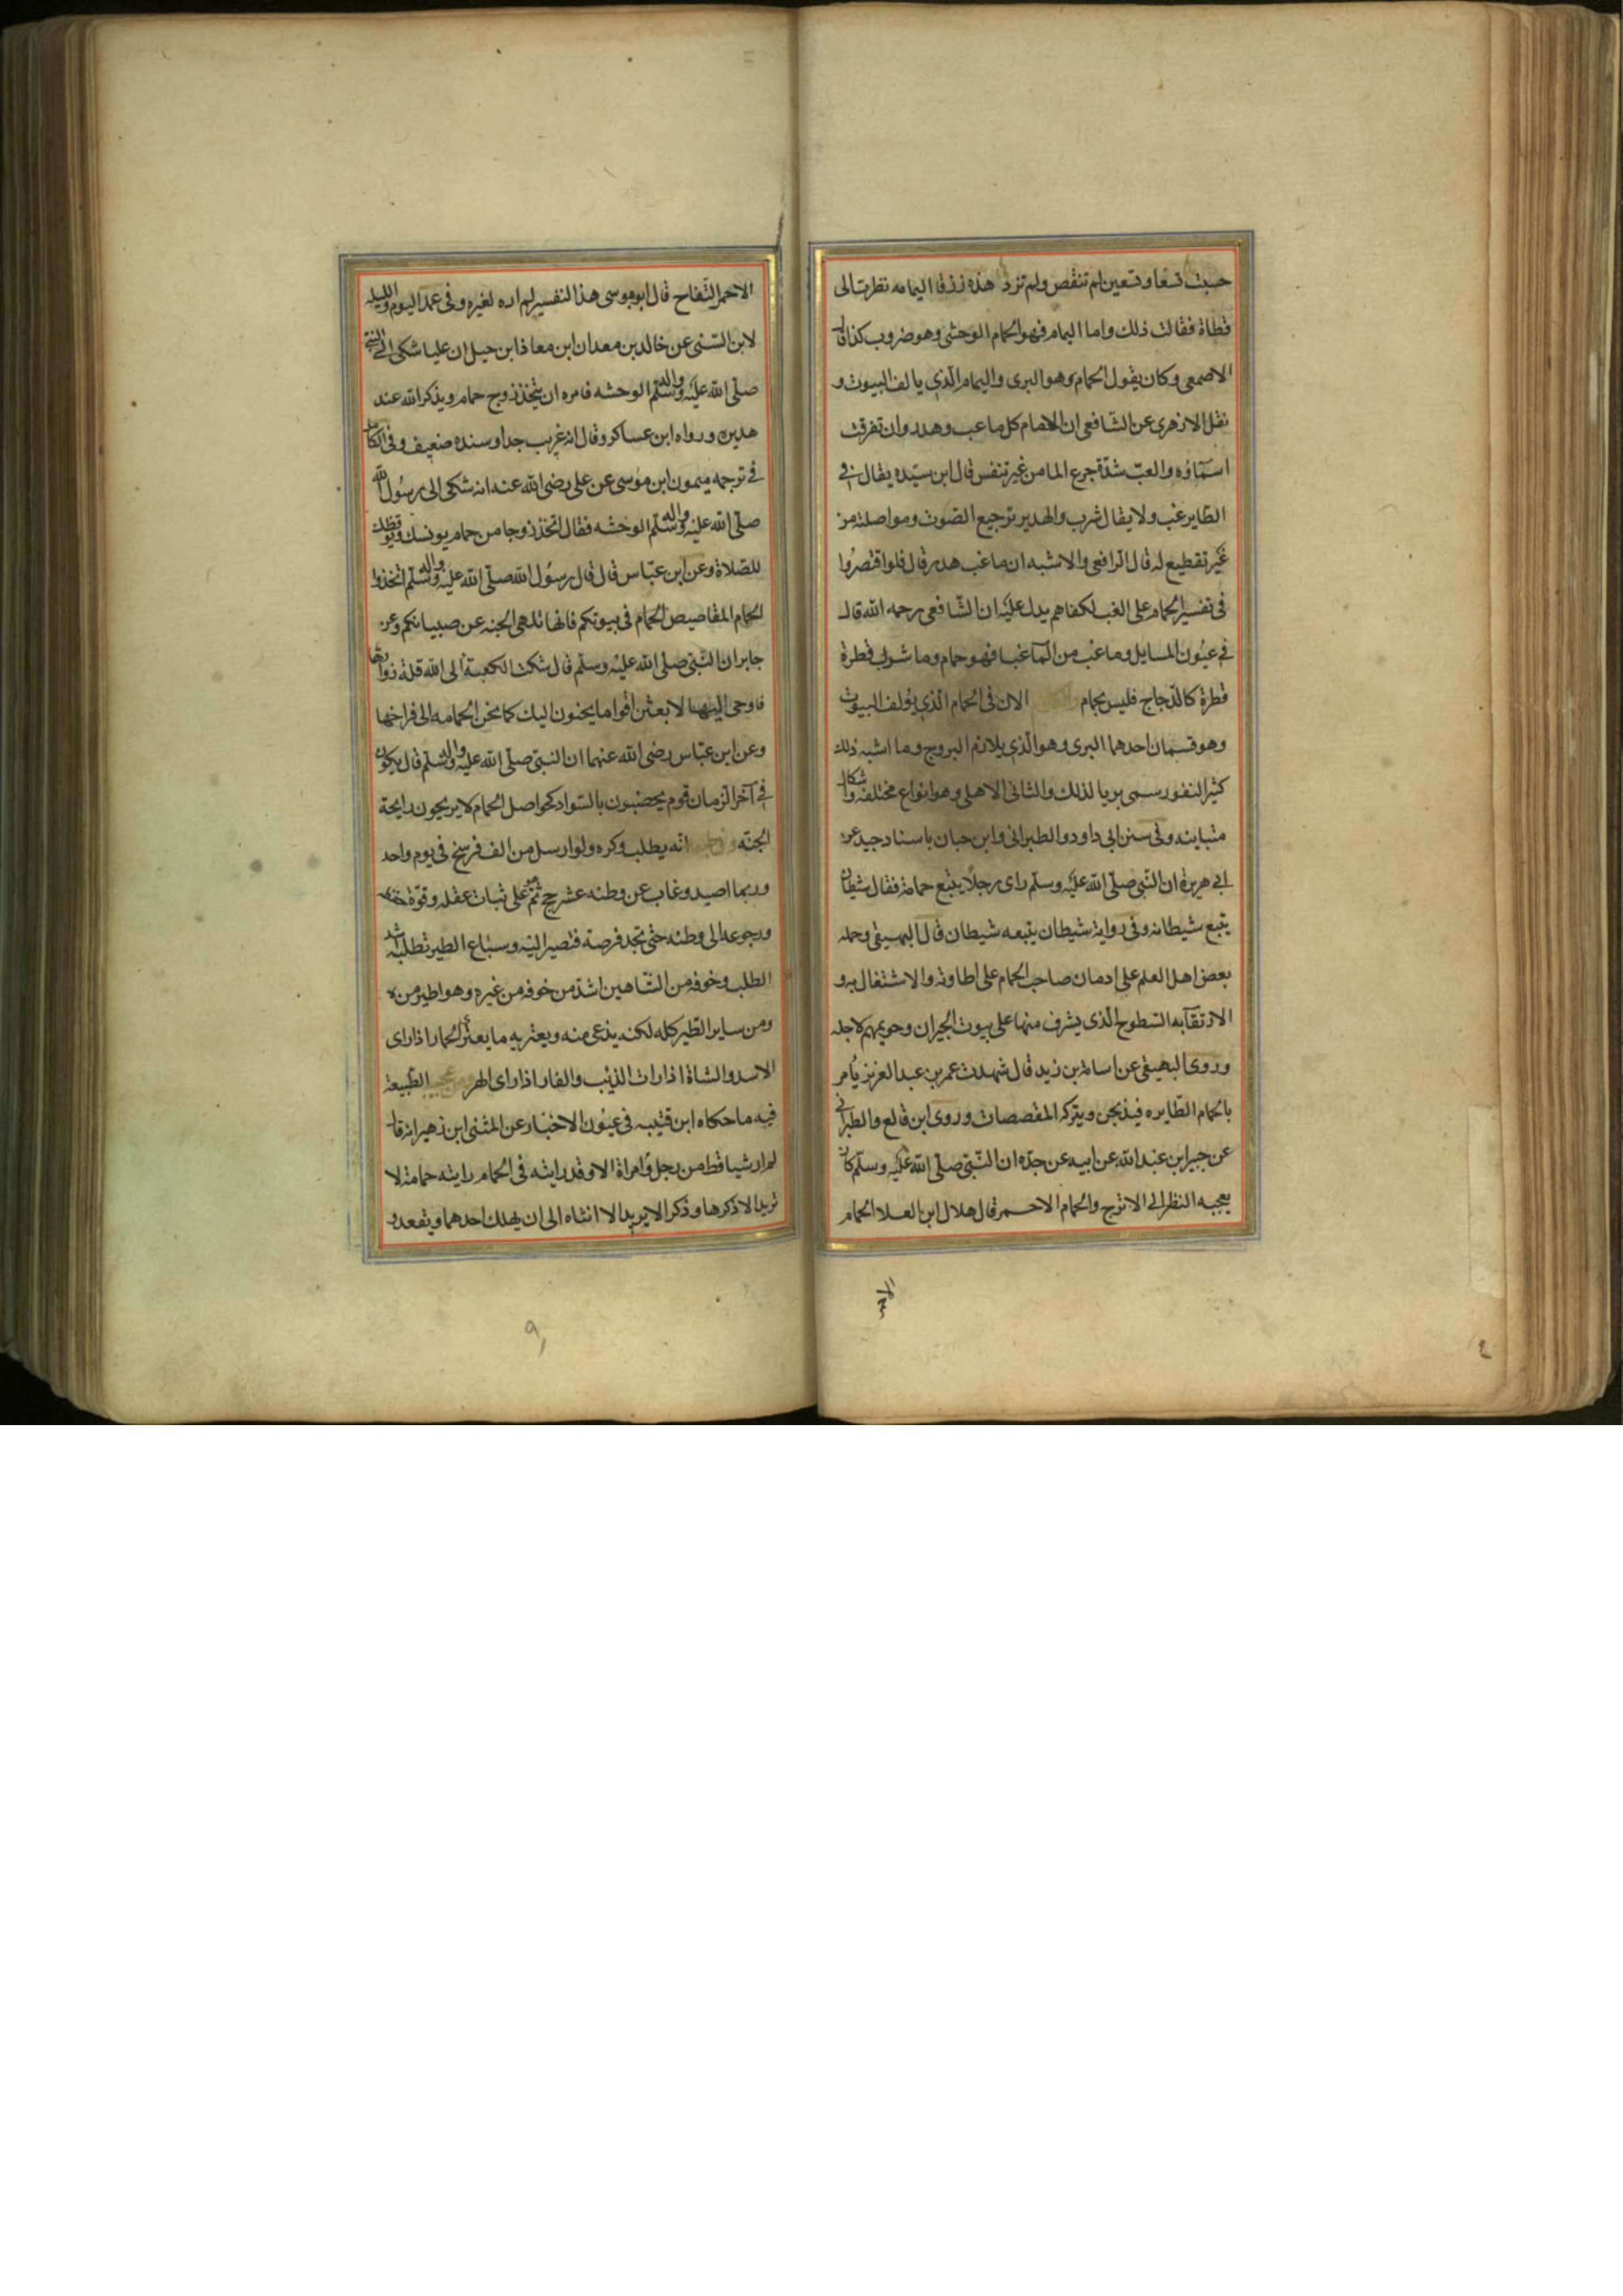 حسبت تسعا وتسعين لم تنقص ولم تزد هذه زرقا اليمامه نظرت الى
قطاة فقالت ذلك واما اليمام فهو الحمام الوحشى وهو ضروب كذا قال
الاصمعى وكان يقول الحمام وهو البرى واليمام الذي يالف البيوت و
نقل الازهرى عن الشافعى ان الاهمام كل ما عب وهدر وان تفرقت
اسمآوه والعب شدة جرع الما من غير تنفس قال ابن سيده يقال في
الطاير عب ولا يقال شرب والهدير ترجيع الصوت ومواصلته من
غير تقطيع له قال الرافعى والاشبه ان ما عب هدر قال فلو اقتصروا
فى تفسير الحمام على الغب لكفاهم يدل عليه ان الشافعى رحمه الله قال
في عيون المسايل وما عب من المآ عبا فهو حمام وما شرب قطرة
قطرة كالدجاج فليس بحمام الان فى الحمام الذي يولف البيوت
وهو قسمان احدهما البرى وهو الذي يلازم البروج وما اشبه ذلك
كثير النفور سمى بريا لذلك والثانى الاهلى وهو انواع مختلفه واشكال
متباينه وفى سنن ابى داود والطبرانى وابن حبان باسناد جيد عن
ابي هريرة ان النبى صلى الله عليه وسلم راى رجلا يتبع حمامة فقال شيطان
يتبع شيطانه وفى رواية شيطان يتبعه شيطان قال البهيقى وحمله
بعض اهل العلم على ادمان صاحب الحمام على اطارته والاشتغال به و
الارتقآ به السطوح الذى يشرف منها على بيوت الجيران وحريمهم لاجله
وروى البهيقى عن اسامة بن زيد قال شهدت عمر بن عبد العزيز يأمر
بالحمام الطايره فيذبحن ويترك المقصصات وروى ابن قانع والطبرانى
عن جبير ابن عبد الله عن ابيه عن جده ان النبى صلى الله عليه وسلم كان
يعجبه النظر الى الاترج والحمام الاحمر قال هلال ابن العلا الحمام
الاحمر
الاحمر التفاح قال ابو موسى هذا التفسير لم اره لغيره وفى عمد اليوم والليله
لابن السنى عن خالد بن معدان ابن معاذ ابن جبل ان عليا شكى الى النبى
صلى الله عليه واله وسلم الوحشه فامره ان يتخذ زوج حمام ويذكر الله عند
هديره ورواه ابن عساكر وقال انه غريب جدا وسنده ضعيف وفى الكامل
فى ترجمه ميمون ابن موسى عن على رضى الله عنه انه شكى الى رسول الله
صلى الله عليه واله وسلم الوحشه فقال اتخذ زوجا من حمام يونسك ويوقظك
للصلاة وعن ابن عباس قال قال رسول الله صلى الله عليه واله وسلم اتخذوا
الحمام المقاصيص الحمام فى بيوتكم فانها تلهى الجنه عن صبيانكم وعن
جابر ان النبى صلى الله عليه وسلم قال شكت الكعبة الى الله قلة زوارها
فاوحى اليها لابعثن اقواما يحنون اليك كما تحن الحمامه الى فراخها
وعن ابن عباس رضى الله عنهما ان النبى صلى الله عليه واله وسلم قال يكون
فى آخر الزمان قوم يخضبون بالسواد كحواصل الحمام لا يريحون رايحة
الجنه انه يطلب وكره ولو ارسل من الف فرسخ فى يوم واحد
وربما اصيد وغاب عن وطنه عشر حجج ثم على ثبات عقله وقوة حفظه
ورجوعه الى وطنه حتى تجد فرصة فتصير اليه وسباع الطير تطلبه اشد
الطلب وخوفه من الشاهين اشد من خوفه من غيره وهو اطير منه
ومن ساير الطير كله لكنه يذعى منه ويعتريه ما يعترى الحمار اذا راى
الاسد والشاة اذا رات الذيب والفار اذا راى الهر الطبيعة
فيه ما حكاه ابن قتيبه فى عيون الاخبار عن المثنى ابن زهير انه قال
لم ار شيا قط من رجل وامراة الا وقد رايته فى الحمام رايته حمامة لا
تريد الا ذكرها وذكرا لا يريد الا انثاه الى ان يهلك احدهما ويفقد و